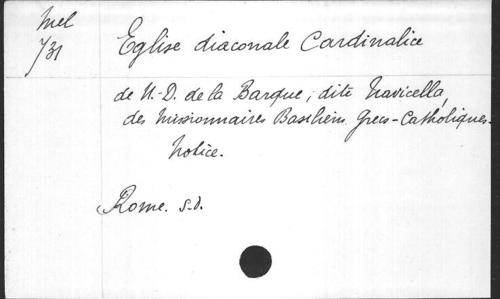 Mel
731
Eglise diaconale Cardinalice
de N.-D. de la Barque, dite Navicella,
des Missionnaires Basiliens Grecs-Catholiques.
Notice.
Rome. s.d.